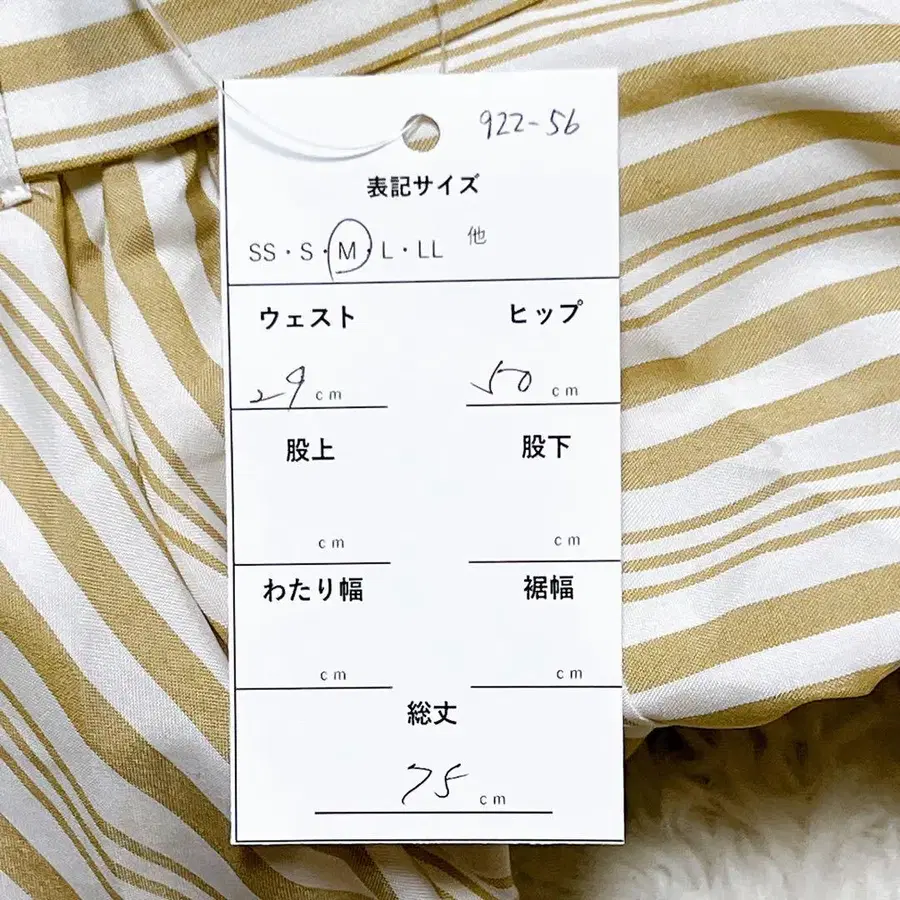 922-56
表記サイズ
SS・S・M・L・LL 他
ウェスト ヒップ
29cm 50cm
股上 股下
cm cm
わたり幅 裾幅
cm cm
総丈
75cm